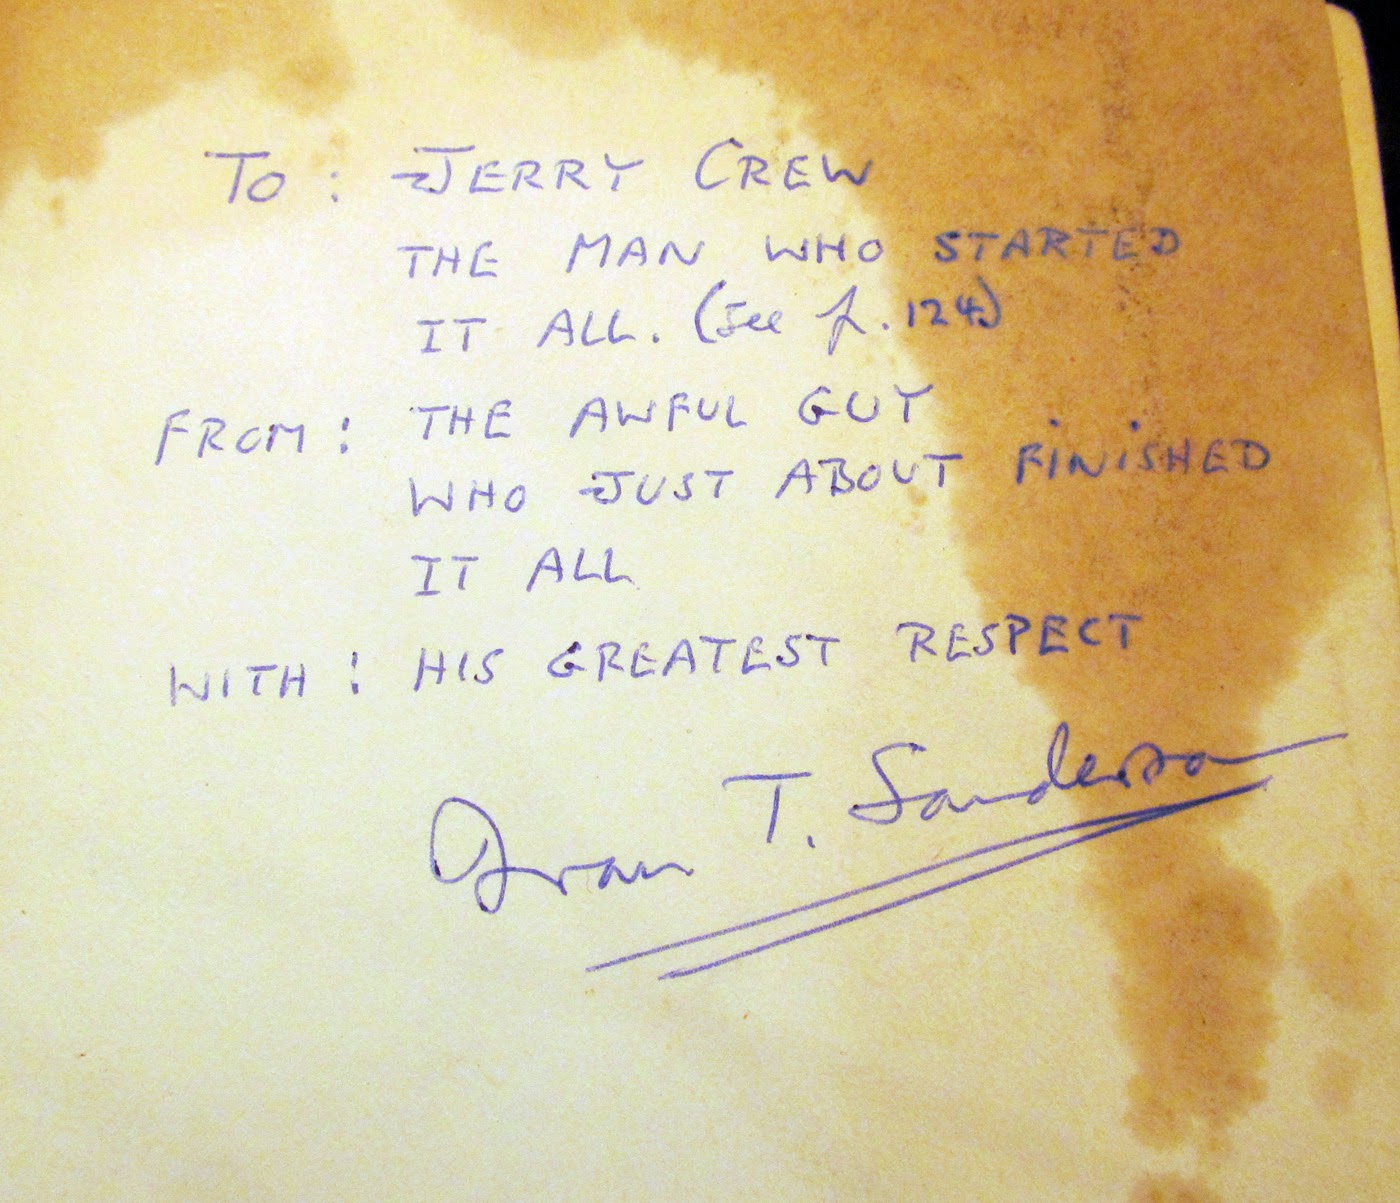 TO: JERRY CREW
THE MAN WHO STARTED
IT ALL. (See p. 124)
FROM: THE AWFUL GUY
WHO JUST ABOUT FINISHED
IT ALL
WITH: HIS GREATEST RESPECT
Ivan T. Sanderson